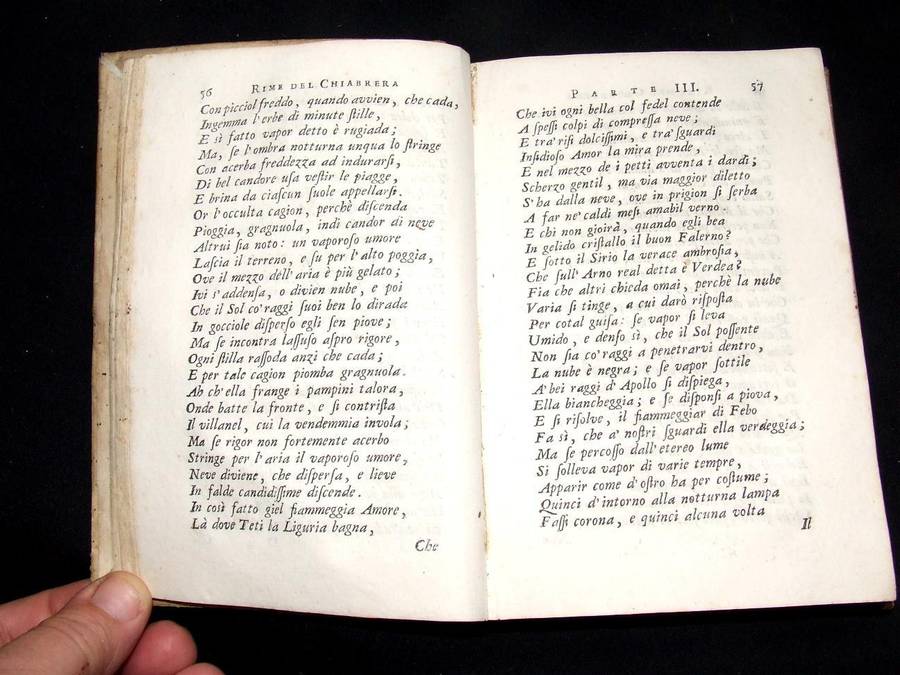 56 RIME DEL CHIABRERA
Con picciol freddo, quando avvien, che cada,
Ingemma l'erbe di minute ſtille,
E sì fatto vapor detto è rugiada;
Ma, ſe l'ombra notturna unqua lo ſtringe
Con acerba freddezza ad indurarſi,
Di bel candore uſa veſtir le piagge,
E brina da ciaſcun ſuole appellarſi.
Or l'occulta cagion, perchè diſcenda
Pioggia, gragnuola, indi candor di neve
Altrui ſia noto: un vaporoſo umore
Laſcia il terreno, e ſu per l'alto poggia,
Ove il mezzo dell'aria è più gelato;
Ivi s'addenſa, o divien nube, e poi
Che il Sol co'raggi ſuoi ben lo dirada
In gocciole diſperſo egli ſen piove;
Ma ſe incontra laſſuſo aſpro rigore,
Ogni ſtilla raſſoda anzi che cada;
E per tale cagion piomba gragnuola.
Ah ch'ella frange i pampini talora,
Onde batte la fronte, e ſi contriſta
Il villanel, cui la vendemmia invola;
Ma ſe rigor non fortemente acerbo
Stringe per l'aria il vaporoſo umore,
Neve diviene, che diſperſa, e lieve
In falde candidiſſime diſcende.
In così fatto giel fiammeggia Amore,
Là dove Teti la Liguria bagna,
Che
PARTE III. 57
Che ivi ogni bella col fedel contende
A ſpeſſi colpi di compreſſa neve;
E tra' riſi dolciſſimi, e tra' ſguardi
Inſidioſo Amor la mira prende,
E nel mezzo de i petti avventa i dardi;
Scherzo gentil, ma via maggior diletto
S'ha dalla neve, ove in prigion ſi ſerba
A far ne' caldi meſi amabil verno.
E chi non gioirà, quando egli bea
In gelido criſtallo il buon Falerno?
E ſotto il Sirio la verace ambroſia,
Che ſull'Arno real detta è Verdea?
Fia che altri chieda omai, perchè la nube
Varia ſi tinge, a cui darò riſpoſta
Per cotal guiſa: ſe vapor ſi leva
Umido, e denſo sì, che il Sol poſſente
Non ſia co'raggi a penetrarvi dentro,
La nube è negra; e ſe vapor ſottile
A' bei raggi d'Apollo ſi diſpiega,
Ella biancheggia; e ſe diſponſi a piova,
E ſi riſolve, il fiammeggiar di Febo
Fa sì, che a' noſtri ſguardi ella verdeggia;
Ma ſe percoſſo dall'etereo lume
Si ſolleva vapor di varie tempre,
Apparir come d'oſtro ha per coſtume;
Quinci d'intorno alla notturna lampa
Faſſi corona, e quinci alcuna volta
Il